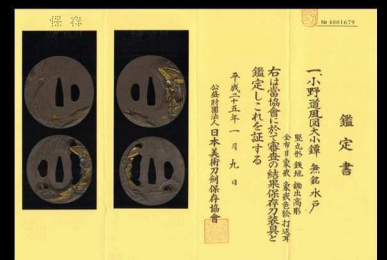 保存
No 4001679
鑑定書
一、小野道風図大小鐔 無銘 水戸
竪丸形 鉄地 鋤出高彫
金布目象嵌 象嵌色絵 打返耳
右は當協會に於て審査の結果保存刀装具と
鑑定しこれを証する
平成二十五年一月九日
公益財団法人日本美術刀剣保存協會